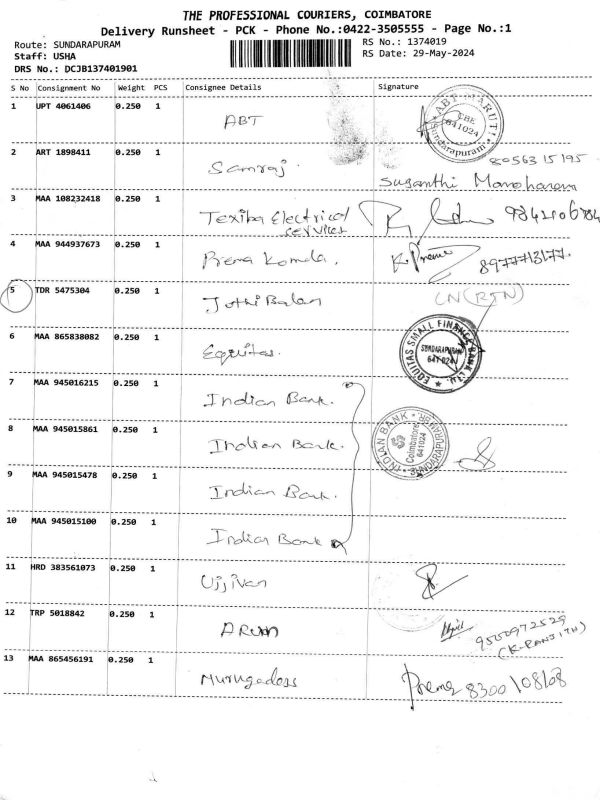 THE PROFESSIONAL COURIERS, COIMBATORE
Delivery Runsheet - PCK - Phone No.:0422-3505555 - Page No.:1
Route: SUNDARAPURAM
RS No.: 1374019
Staff: USHA
RS Date: 29-May-2024
DRS No.: DCJB137401901
S No Consignment No Weight PCS Consignee Details Signature
1 UPT 4061406 0.250 1 ABT
ABT MARUTI CBE 641024 Sundarapuram
2 ART 1898411 0.250 1 Samraj. 8056315195
Susanthi Manoharan
3 MAA 108232418 0.250 1 Texiba Electrical services
4 MAA 944937673 0.250 1 Prema Komala. K. Prema 8977713177.
5 TDR 5475304 0.250 1 Jothi Balan LN (RTN)
6 MAA 865838082 0.250 1 Equitas.
EQUITAS SMALL FINANCE BANK LTD. SUNDARAPURAM 641 024
7 MAA 945016215 0.250 1 Indian Bank.
8 MAA 945015861 0.250 1 Indian Bank.
INDIAN BANK Coimbatore 641024 SUNDARAPURAM BR.
9 MAA 945015478 0.250 1 Indian Bank.
10 MAA 945015100 0.250 1 Indian Bank
11 HRD 383561073 0.250 1 Ujjivan
12 TRP 5018842 0.250 1 ARUN 9500972529
(K-RANJITH)
13 MAA 865456191 0.250 1 Murugadoss Prema 8300108108